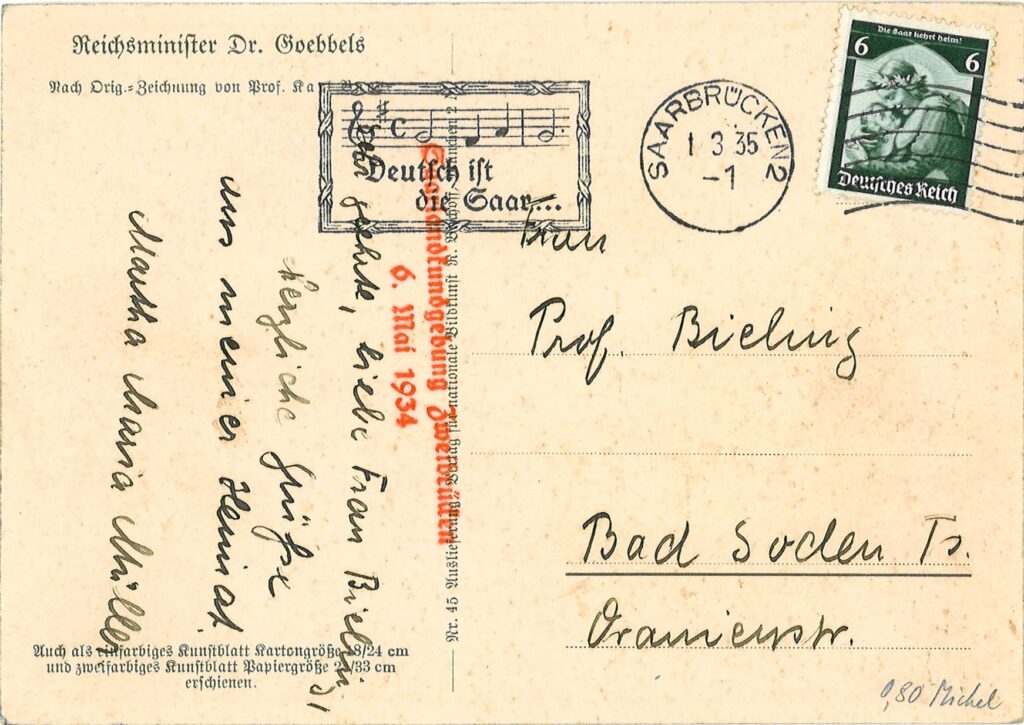 Reichsminister Dr. Goebbels
Nach Orig.=Zeichnung von Prof.
Deutsch ist
die Saar...
SAARBRÜCKEN 2
1 3 35
-1
Die Saar kehrt heim!
6 6
Deutsches Reich
Saarkundgebung Zweibrücken
6. Mai 1934
Nr. 45 Auslieferung: Verlag für nationale Bildkunst
Sehr geehrte, liebe Frau Bieling,
herzliche Grüße
aus meiner Heimat
Martha Maria Müller
Frau
Prof. Bieling
Bad Soden Ts.
Oranienstr.
Auch als einfarbiges Kunstblatt Kartongröße 18/24 cm
und zweifarbiges Kunstblatt Papiergröße /33 cm
erschienen.
0,80 Michel